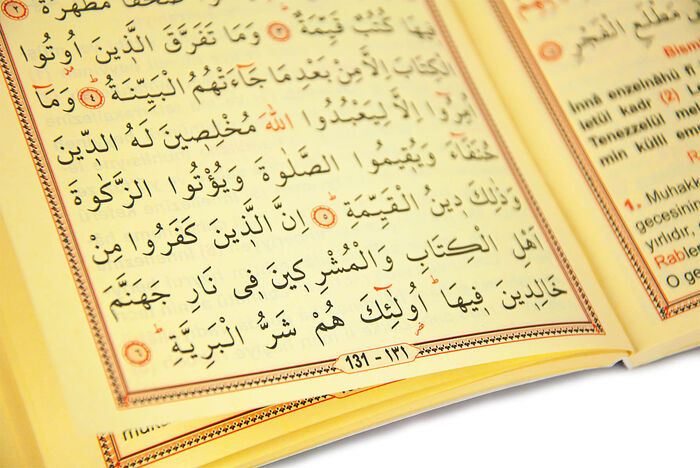 صُحُفًا مُطَهَّرَةً ﴿٢﴾
فِيهَا كُتُبٌ قَيِّمَةٌ ﴿٣﴾ وَمَا تَفَرَّقَ الَّذِينَ اُوتُوا
الْكِتَابَ اِلَّا مِنْ بَعْدِ مَا جَاءَتْهُمُ الْبَيِّنَةُ ﴿٤﴾ وَمَا
اُمِرُوا اِلَّا لِيَعْبُدُوا اللهَ مُخْلِصِينَ لَهُ الدِّينَ
حُنَفَاءَ وَيُقِيمُوا الصَّلٰوةَ وَيُؤْتُوا الزَّكٰوةَ
وَذٰلِكَ دِينُ الْقَيِّمَةِ ﴿٥﴾ اِنَّ الَّذِينَ كَفَرُوا مِنْ
اَهْلِ الْكِتَابِ وَالْمُشْرِكِينَ فِى نَارِ جَهَنَّمَ
خَالِدِينَ فِيهَا اُولٰئِكَ هُمْ شَرُّ الْبَرِيَّةِ ﴿٦﴾
131 - ١٣١
مَطْلَعِ الْفَجْرِ ﴿٥﴾
İnnâ enzelnâhü
letül kadr (2)
Tenezzelül
min külli em
1. Muhak
gecesini
yırlıdır.
Rab
O ge